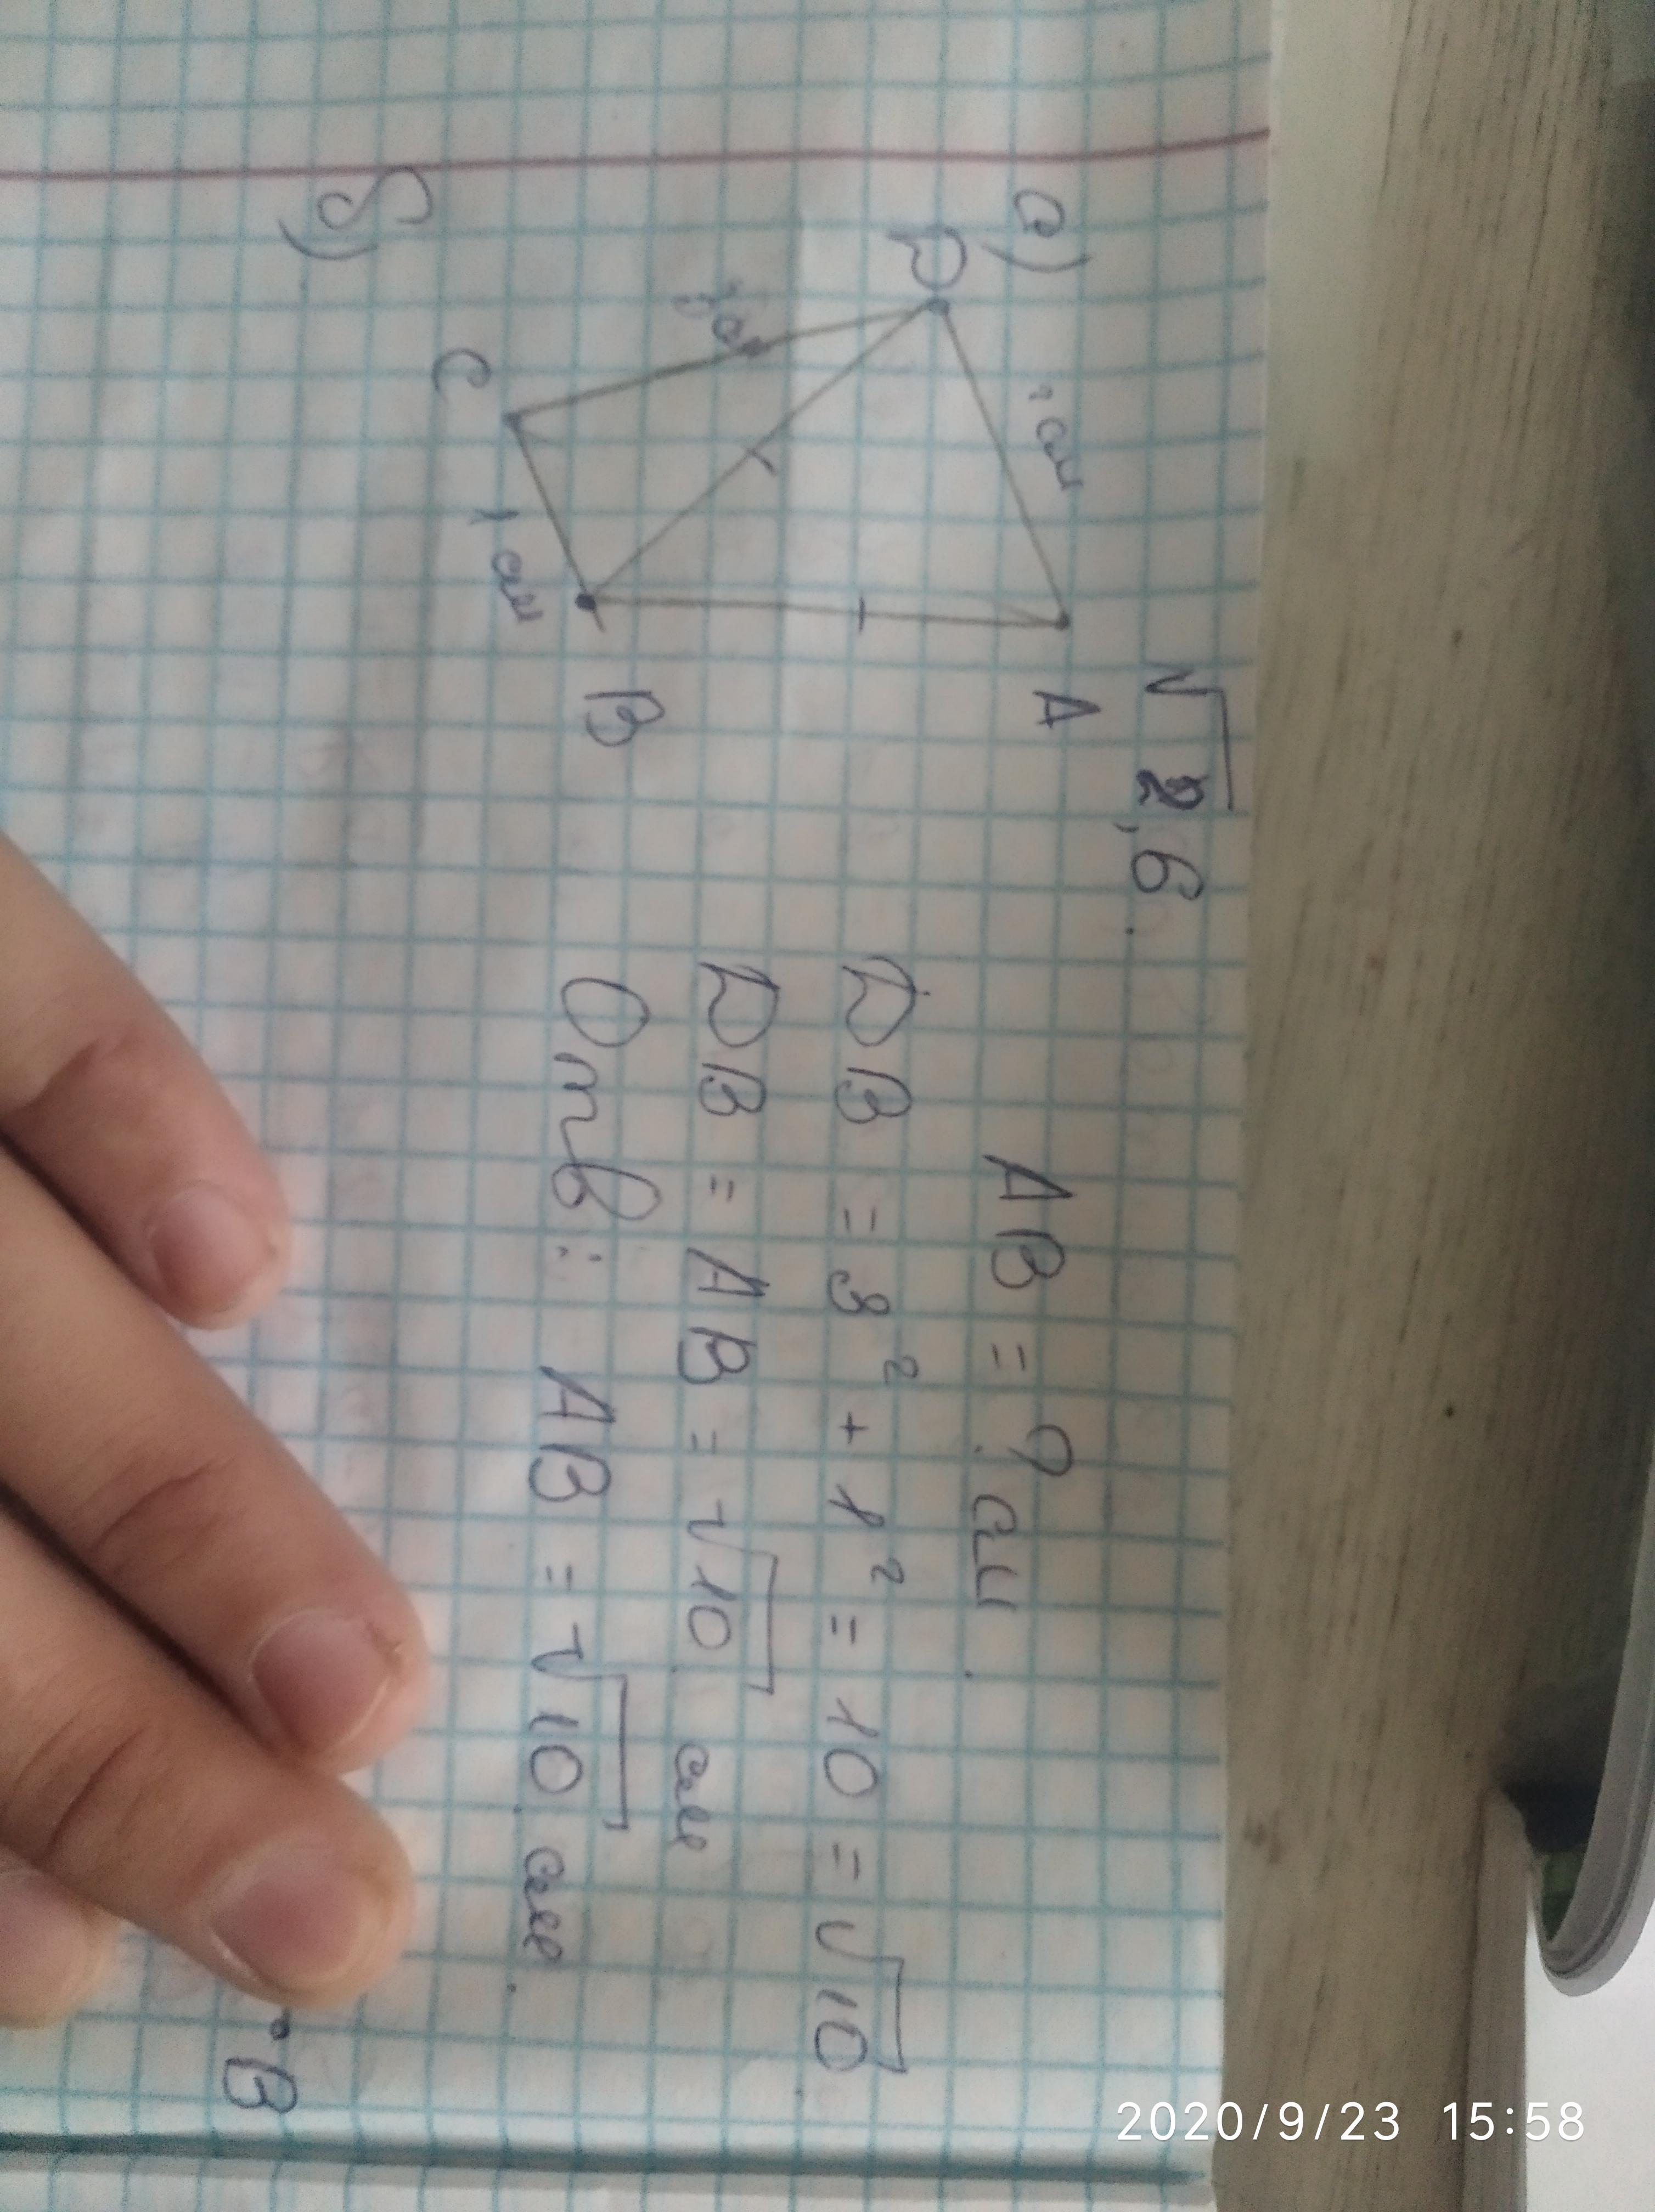 √2,6.
а)
A
D
B
C
1 см
AB = ? см.
DB = 3² + 1² = 10 = √10
DB = AB = √10 см
Отв: AB = √10 см.
б)
B
2020/9/23 15:58